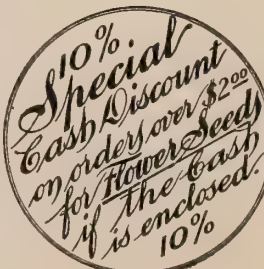 10%
Special
Cash Discount
on orders over $2.00
for Flower Seeds
if the Cash
is enclosed.
10%